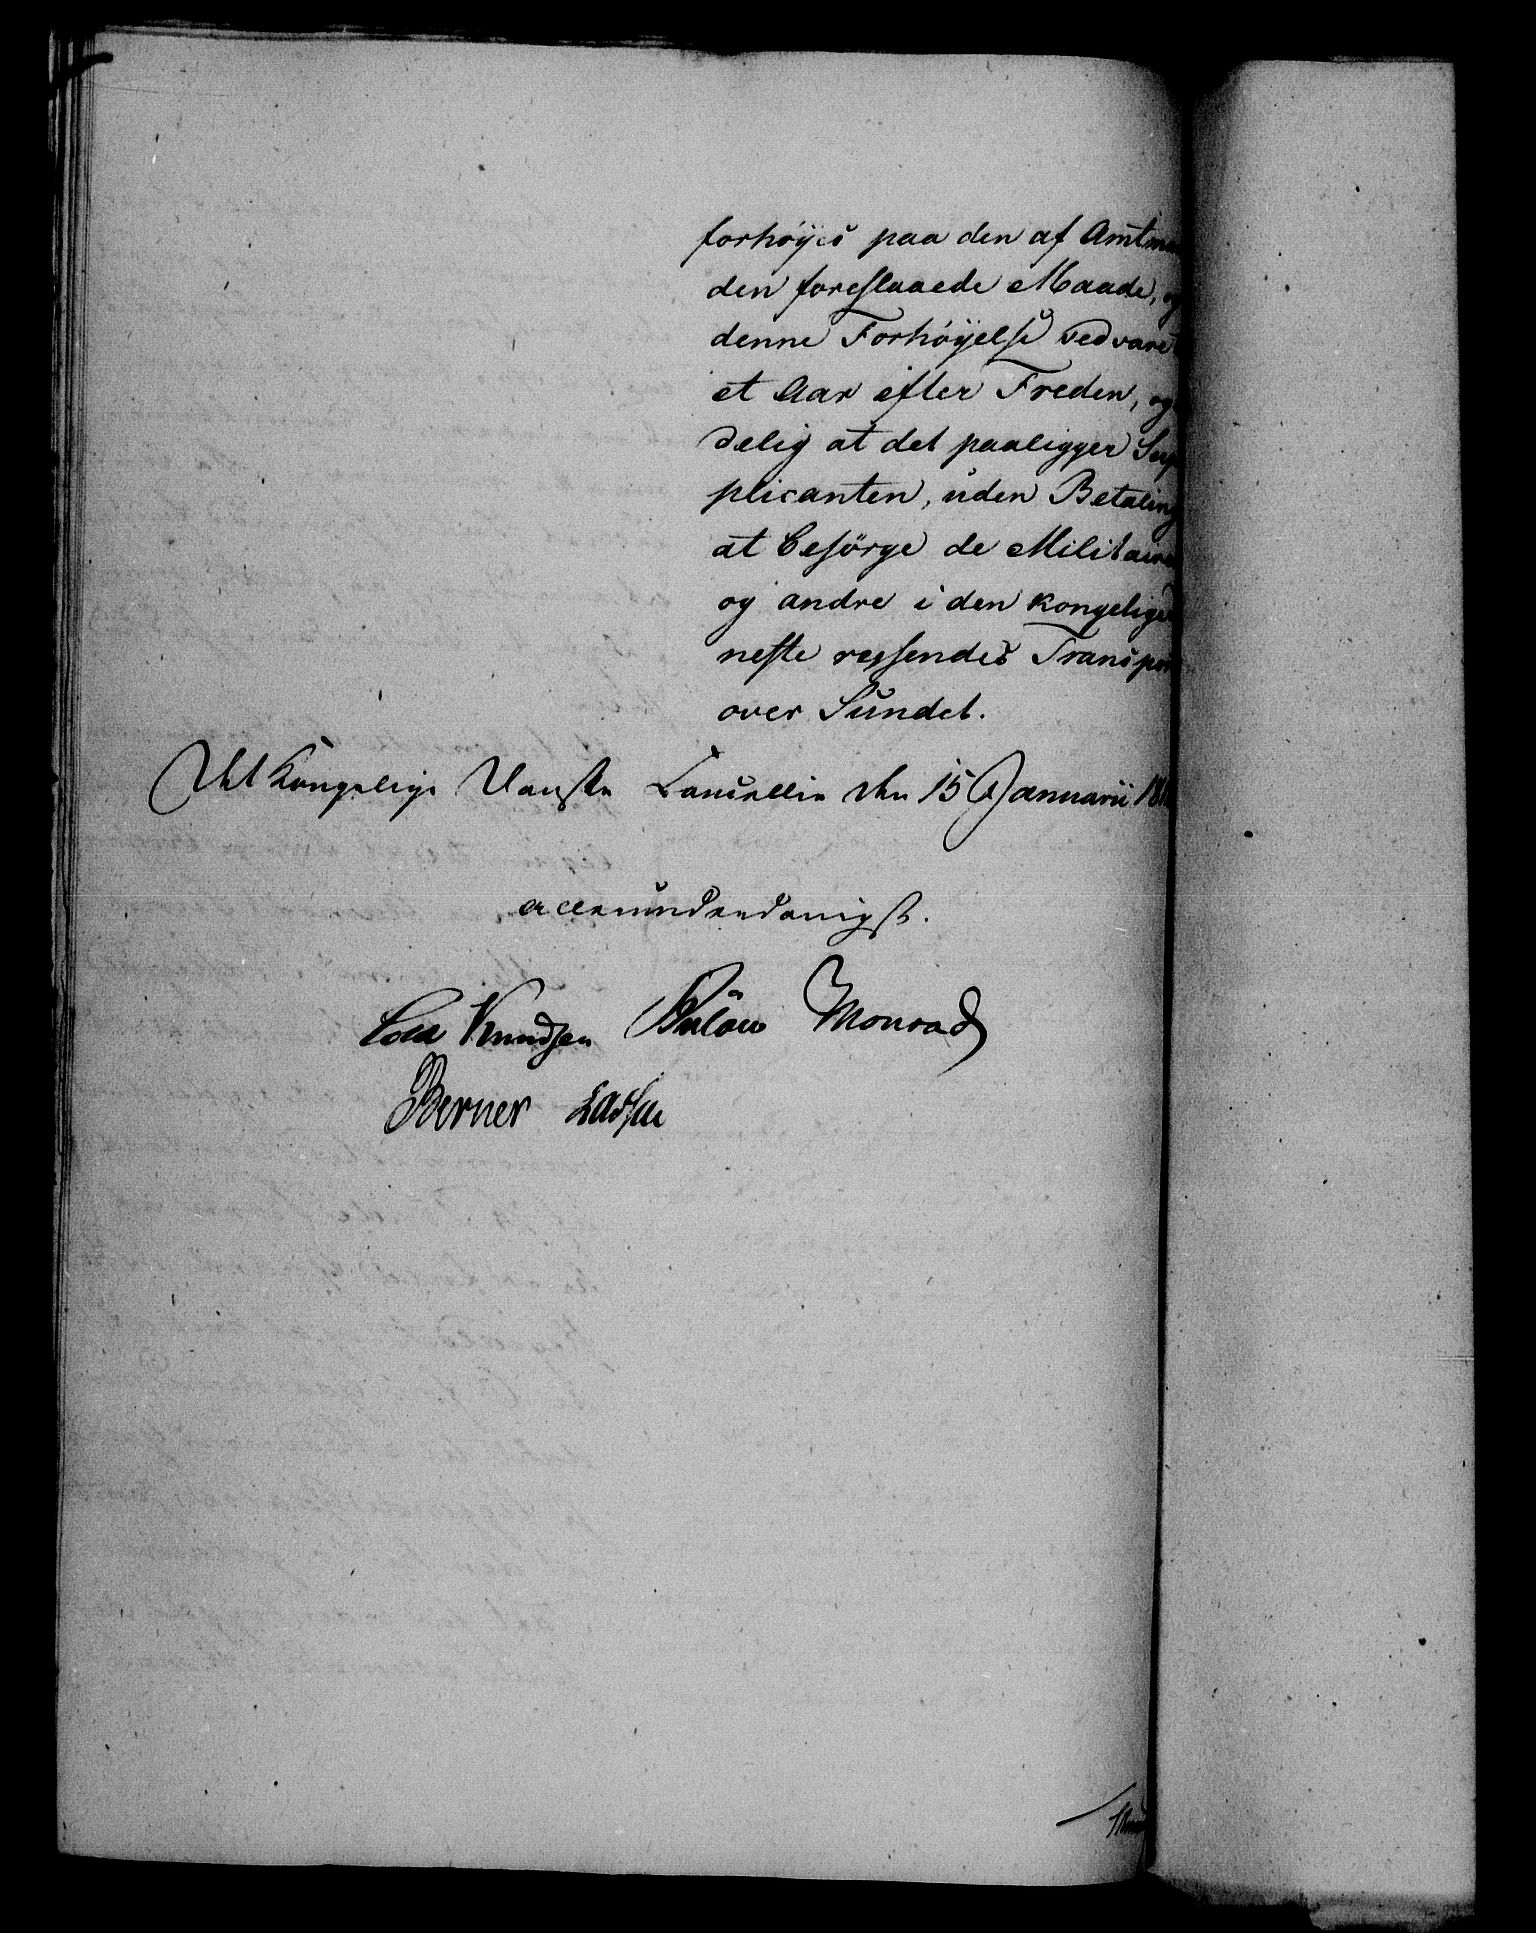 forhøyes paa den af Amtman
den foreslaaede Maade, og
denne Forhøyelse vedvare
et Aar efter Freden, og
delig at det paaligger Sup
plicanten, uden Betaling
at besørge de Militaire
og andre i den kongelige
neste reysendes Transpor
over Sundet.
Det Kongelige Danske Cancellie den 15 Januarii 18
allerunderdanigst.
Cold Knudsen Bülow Monrad
Berner Lassen